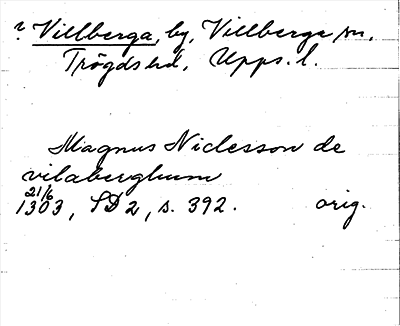 ? Villberga, by, Villberga sn,
Trögds hd, Upps. l.
Magnus Niclesson de
vilaberghum
21/6
1303, SD 2, s. 392. orig.